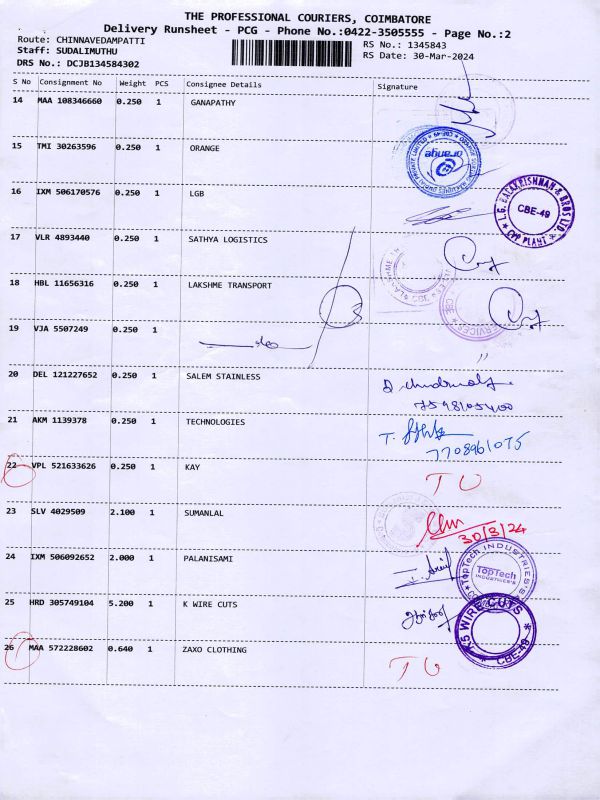 THE PROFESSIONAL COURIERS, COIMBATORE
Delivery Runsheet - PCG - Phone No.:0422-3505555 - Page No.:2
Route: CHINNAVEDAMPATTI
RS No.: 1345843
Staff: SUDALIMUTHU
RS Date: 30-Mar-2024
DRS No.: DCJB134584302
S No Consignment No Weight PCS Consignee Details Signature
14 MAA 108346660 0.250 1 GANAPATHY
15 TMI 30263596 0.250 1 ORANGE
orange
16 IXM 506170576 0.250 1 LGB
L.G. BALAKRISHNAN & BROS LTD.
CBE-49
17 VLR 4893440 0.250 1 SATHYA LOGISTICS
18 HBL 11656316 0.250 1 LAKSHME TRANSPORT
19 VJA 5507249 0.250 1
20 DEL 121227652 0.250 1 SALEM STAINLESS
21 AKM 1139378 0.250 1 TECHNOLOGIES
7708961075
22 VPL 521633626 0.250 1 KAY
23 SLV 4029509 2.100 1 SUMANLAL
30/3/24
24 IXM 506092652 2.000 1 PALANISAMI
TopTech INDUSTRIES'S
TopTech
INDUSTRIES'S
25 HRD 305749104 5.200 1 K WIRE CUTS
K5 WIRE CUTS
CBE-49
26 MAA 572228602 0.640 1 ZAXO CLOTHING